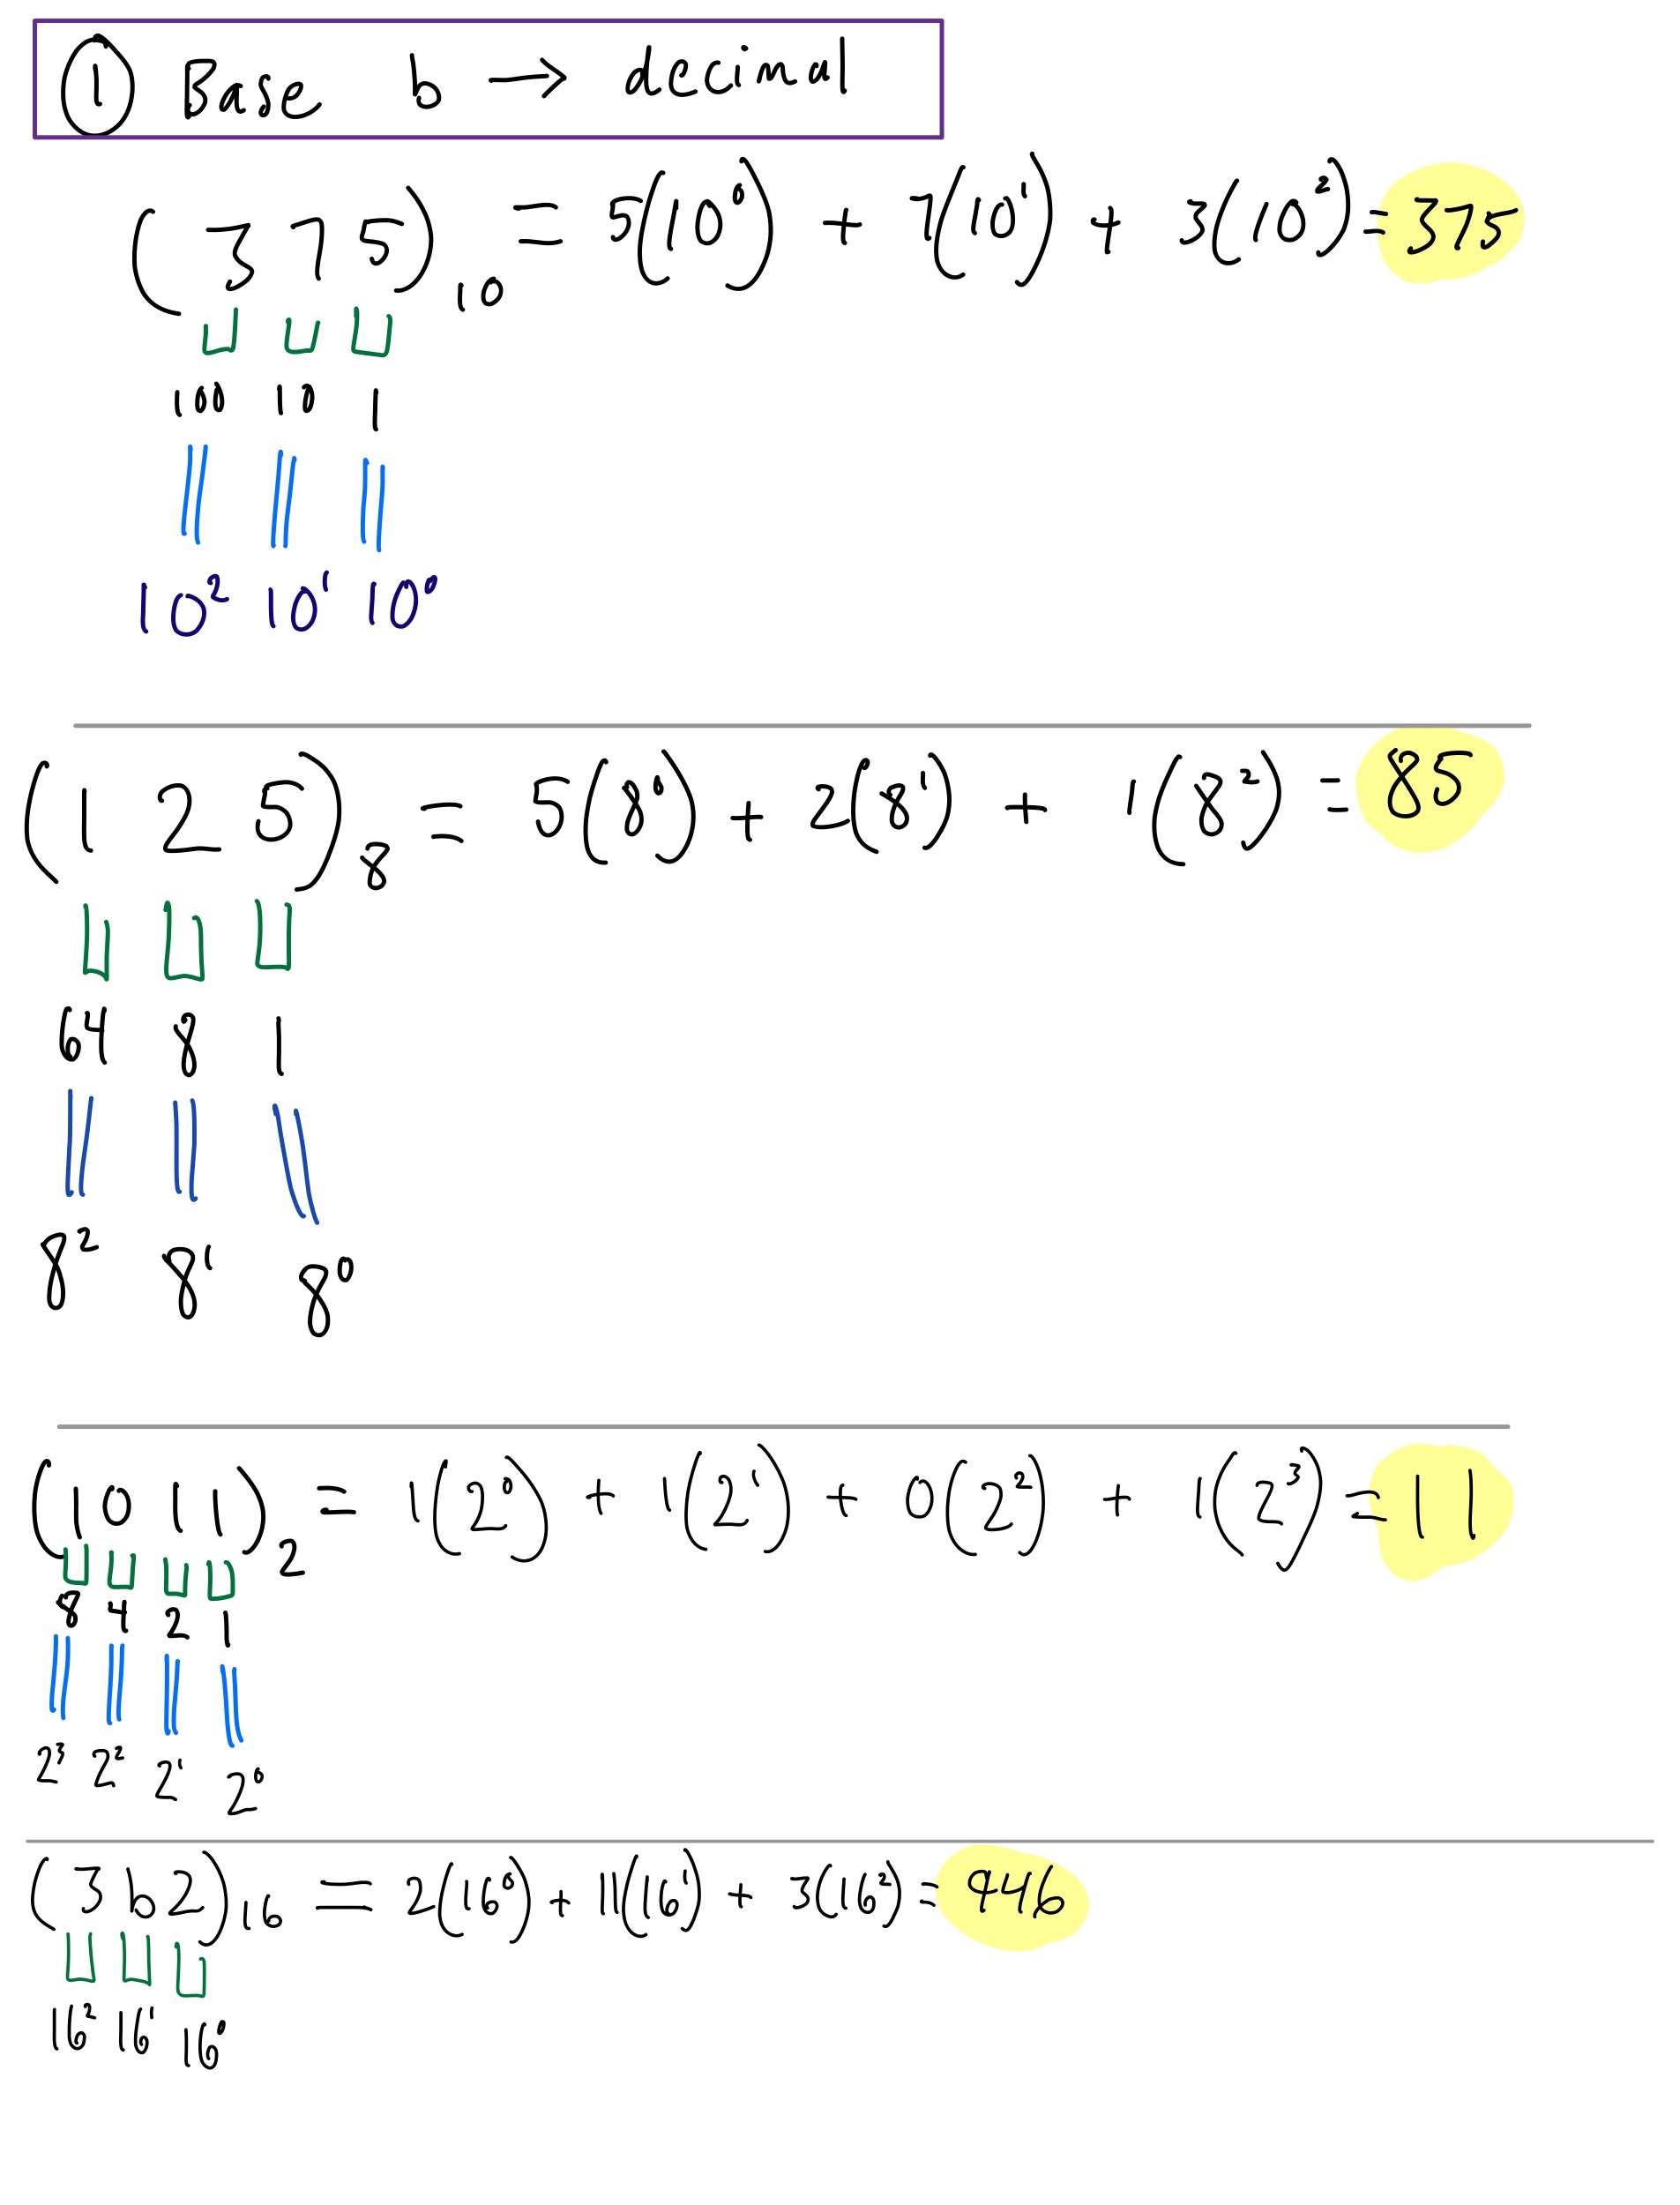 ① Base b → decimal
(375)₁₀ = 5(10⁰) + 7(10¹) + 3(10²) = 375
100 10 1
10² 10¹ 10⁰
(125)₈ = 5(8⁰) + 2(8¹) + 1(8²) = 85
64 8 1
8² 8¹ 8⁰
(1011)₂ = 1(2⁰) + 1(2¹) + 0(2²) + 1(2³) = 11
8 4 2 1
2³ 2² 2¹ 2⁰
(3b2)₁₆ = 2(16⁰) + 11(16¹) + 3(16²) = 946
16² 16¹ 16⁰